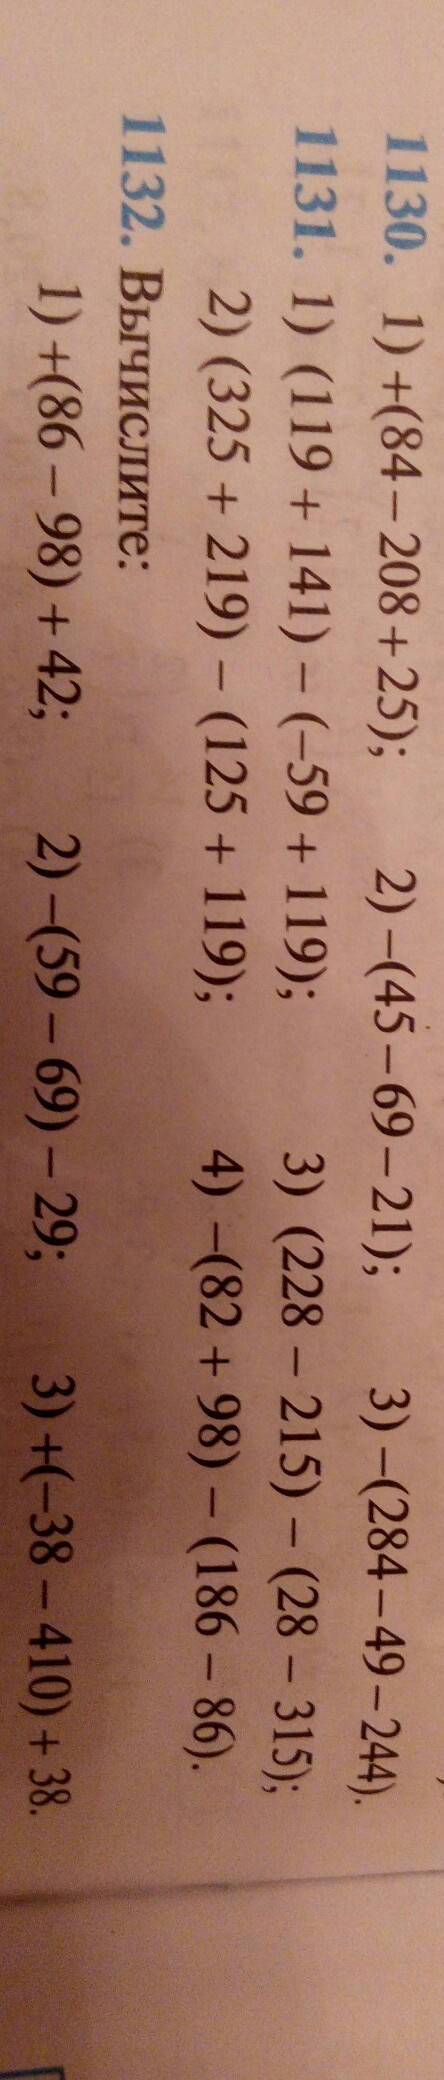 1130. 1) +(84 – 208 + 25); 2) –(45 – 69 – 21); 3) –(284 – 49 – 244).
1131. 1) (119 + 141) – (–59 + 119); 3) (228 – 215) – (28 – 315);
2) (325 + 219) – (125 + 119); 4) –(82 + 98) – (186 – 86).
1132. Вычислите:
1) +(86 – 98) + 42; 2) –(59 – 69) – 29; 3) +(–38 – 410) + 38.